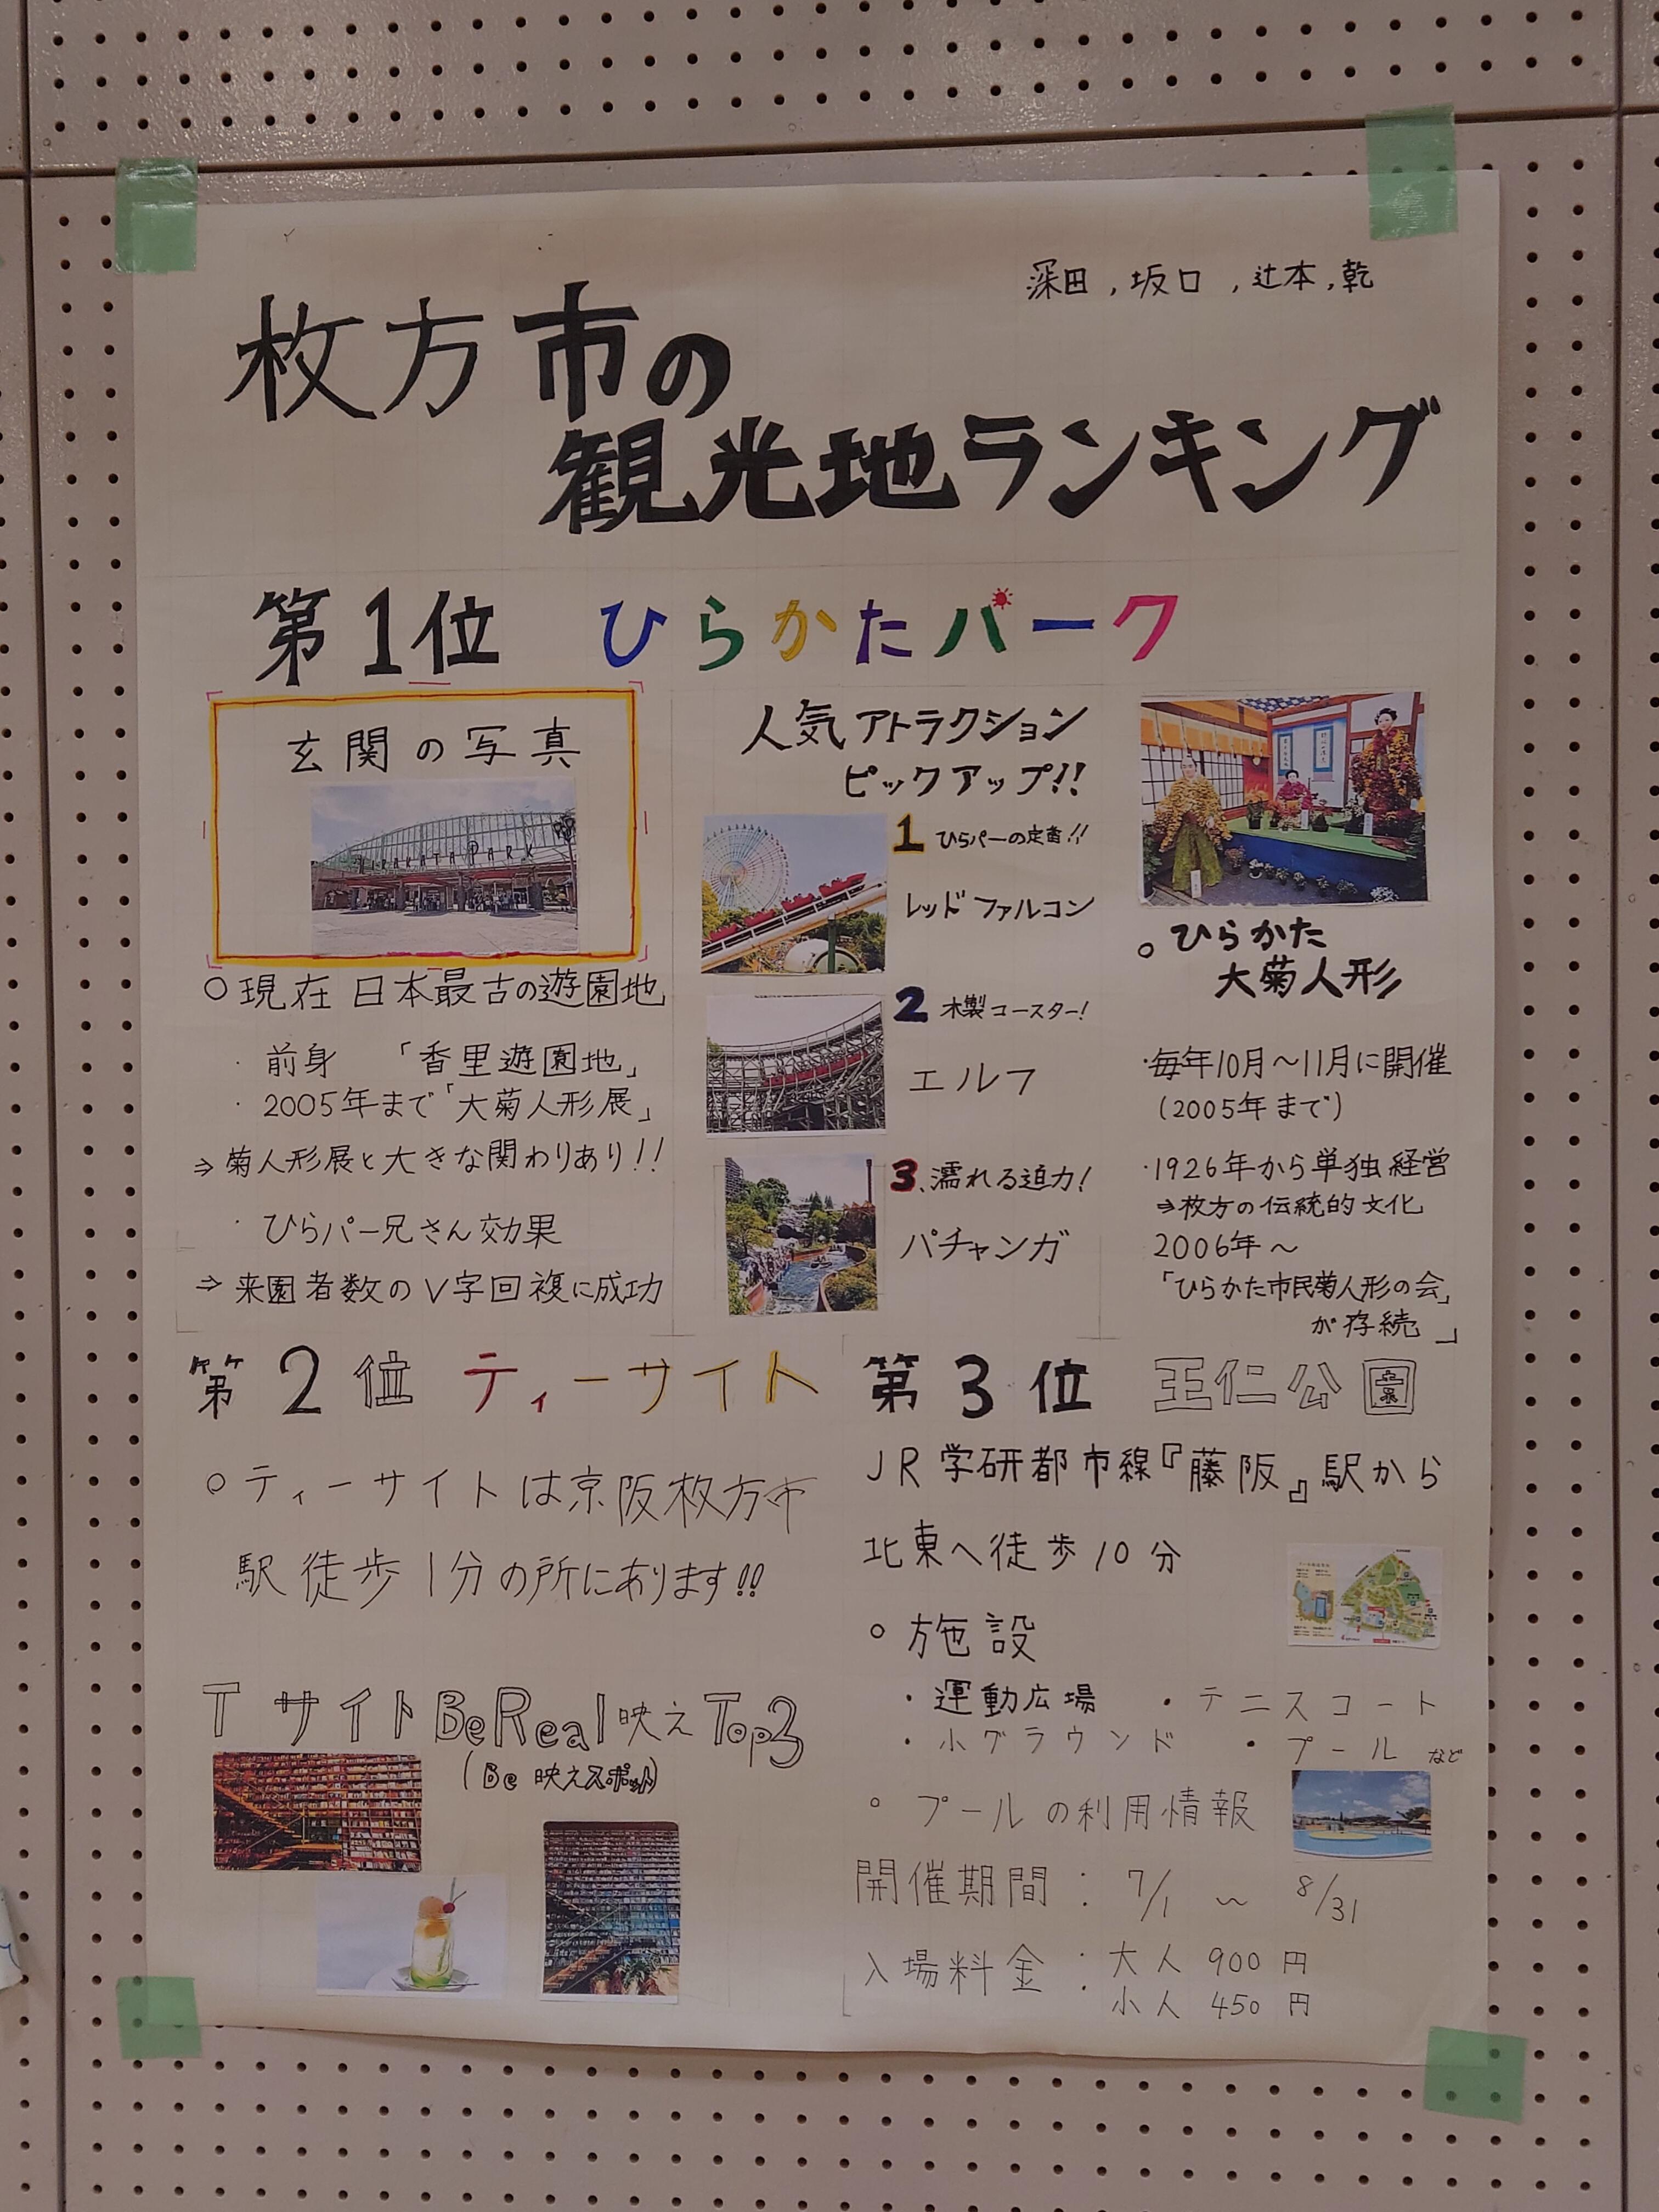 深田,坂口,辻本,乾
枚方市の
観光地ランキング
第1位 ひらかたパーク
玄関の写真
HIRAKATA PARK
○現在 日本最古の遊園地
・前身 「香里遊園地」
・2005年まで「大菊人形展」
⇒菊人形展と大きな関わりあり!!
・ひらパー兄さん効果
⇒来園者数のV字回複に成功
人気アトラクション
ピックアップ!!
1 ひらパーの定番!!
レッドファルコン
2 木製コースター!
エルフ
3、濡れる迫力!
パチャンガ
○ひらかた
大菊人形
・毎年10月〜11月に開催
(2005年まで)
・1926年から単独経営
⇒枚方の伝統的文化
2006年〜
「ひらかた市民菊人形の会」
が存続
第2位 ティーサイト
○ティーサイトは京阪枚方市
駅徒歩1分の所にあります!!
TサイトBeReal映えTop3
(Be映えスポット)
第3位 王仁公園
JR学研都市線『藤阪』駅から
北東へ徒歩10分
○施設
・運動広場 ・テニスコート
・小グラウンド ・プール など
○プールの利用情報
開催期間:7/1 〜 8/31
入場料金:大人 900円
小人 450円